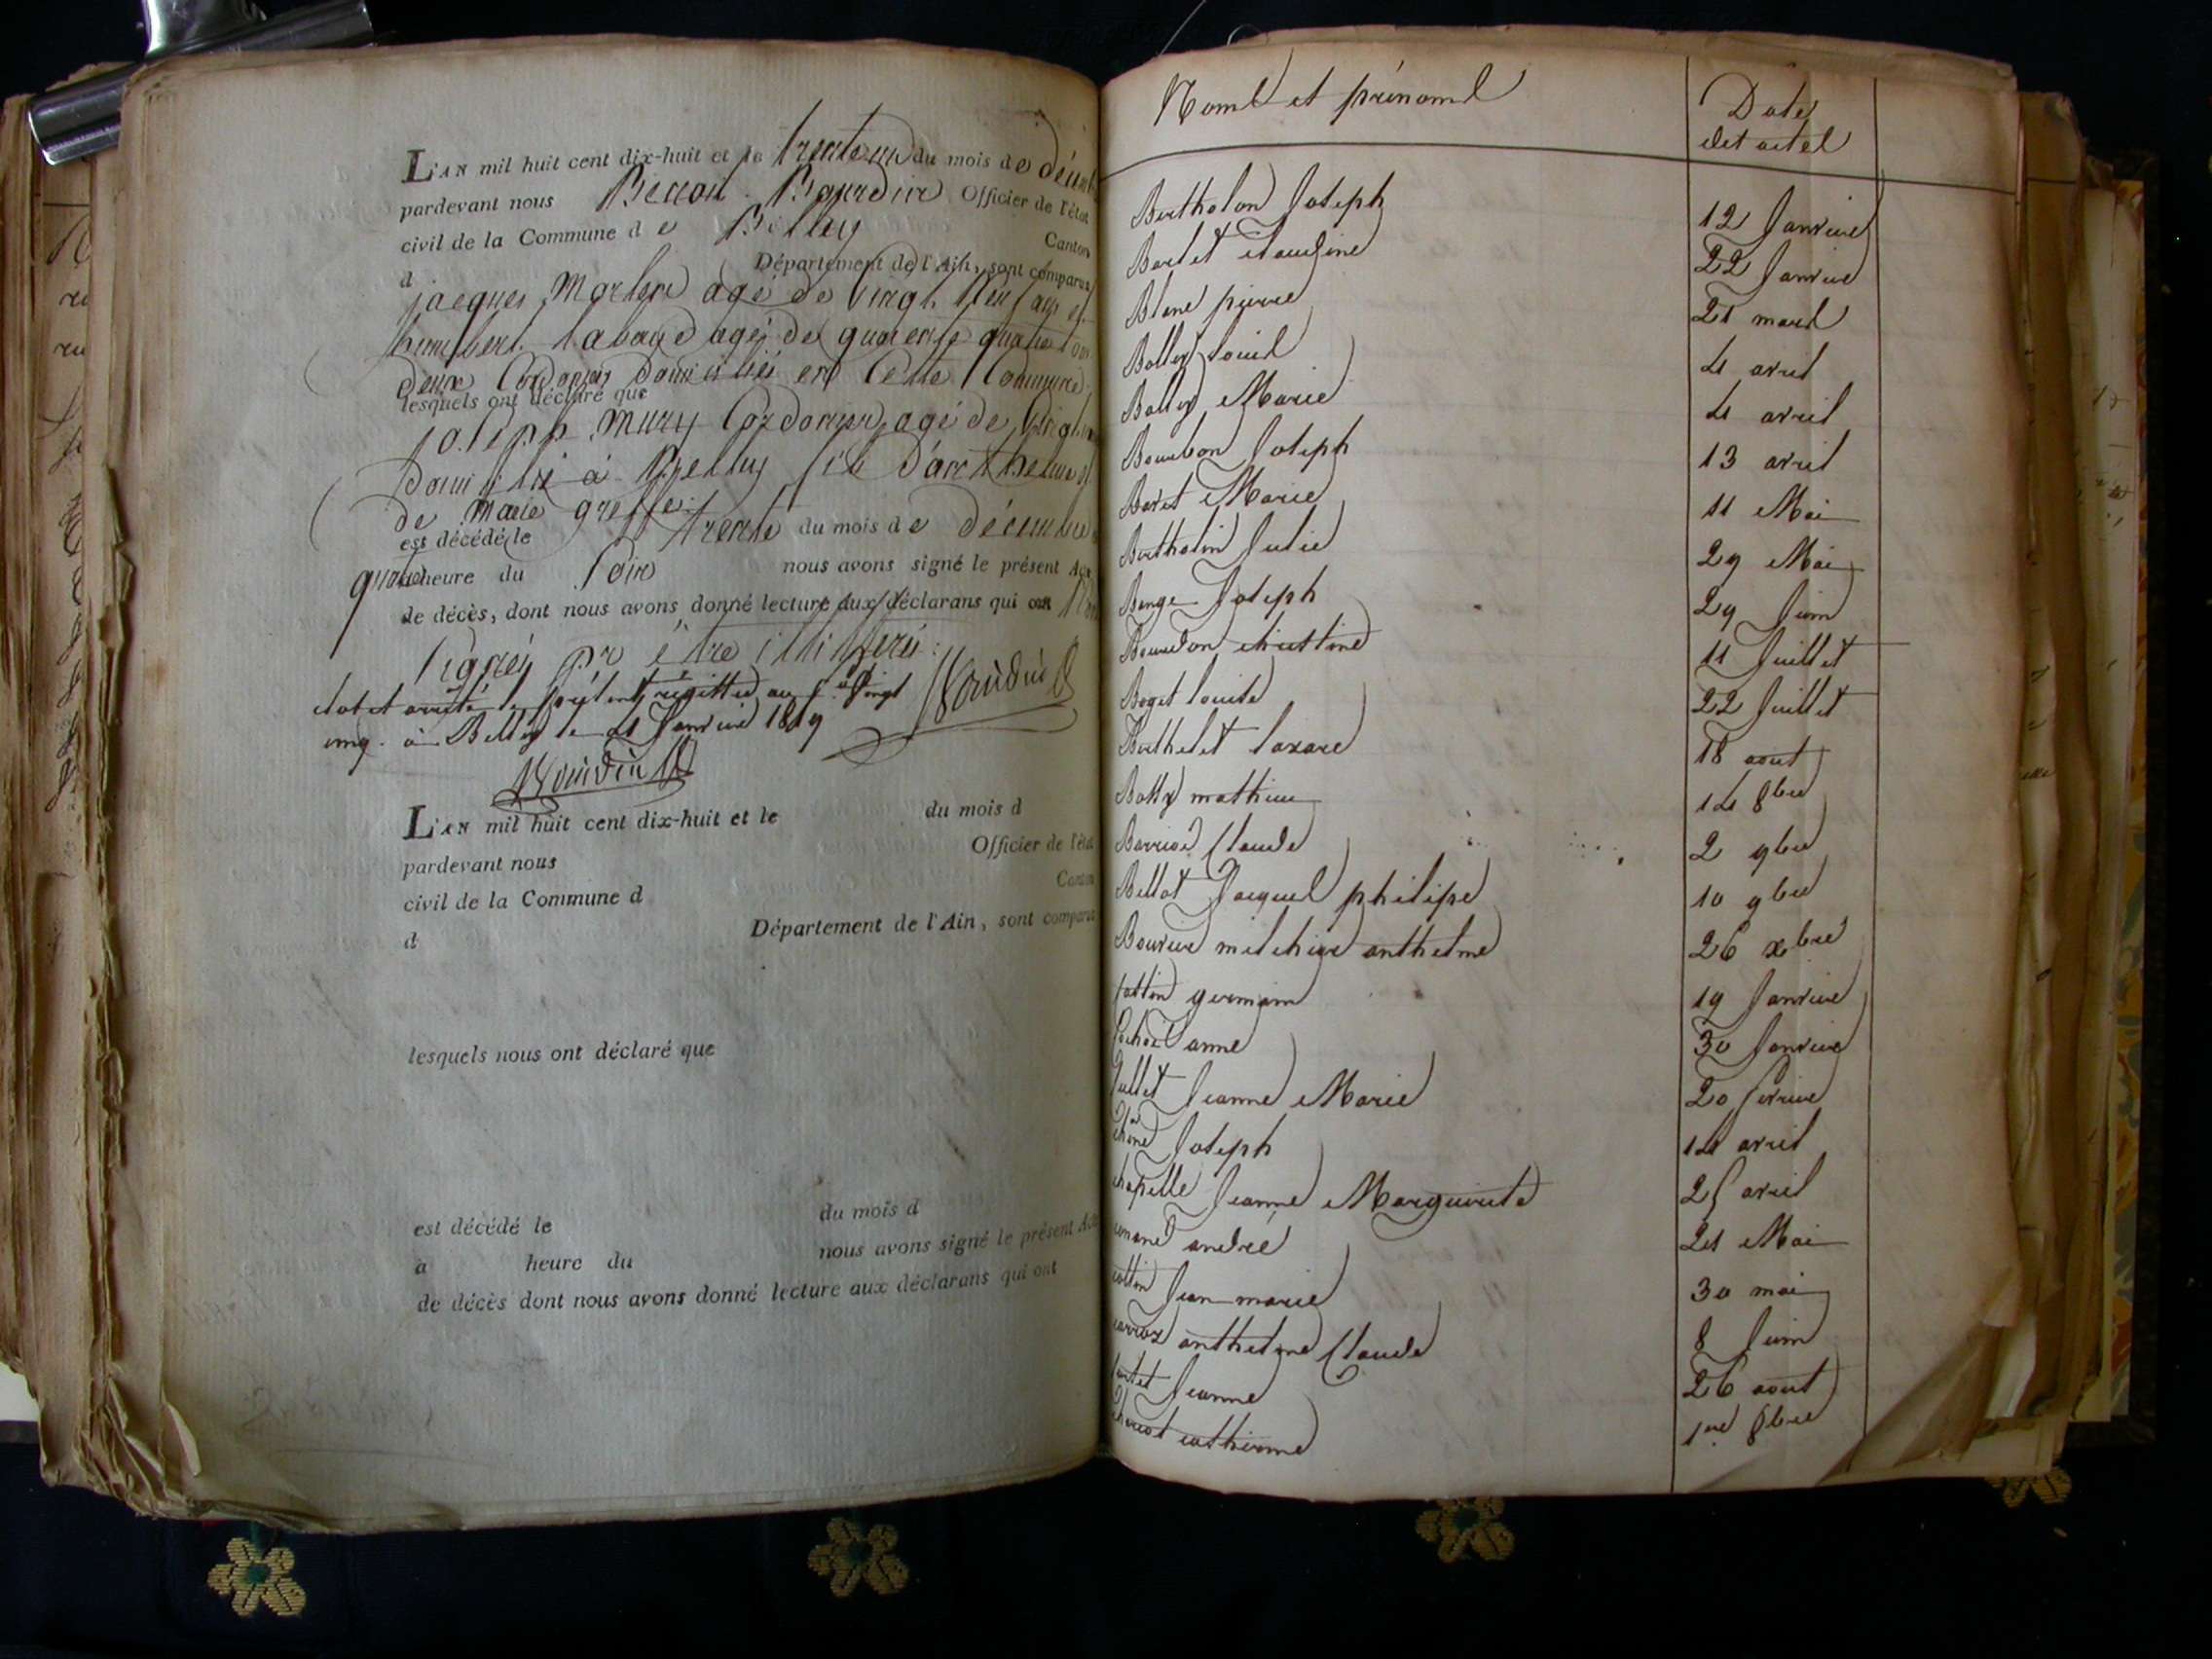 L'AN mil huit cent dix-huit et le trente un du mois de décemb
pardevant nous Benoit Bourdin Officier de l'état
civil de la Commune d e Belley Canton
d Département de l'Ain, sont comparus
jacques Marten agé de vingt neuf ans et
humbert labaud agé de quarente quatre ans
deux Cordoniers domiciliés en cette Commune
lesquels ont déclaré que
joseph mury Cordonier agé de vingt
domicilié à Belley fils d'anthelme et
de marie greffe
est décédé le trente du mois de décembre
quatre heure du soir nous avons signé le présent Acte
de décès, dont nous avons donné lecture aux déclarans qui ont non
signés pr être illitteré
clot et arrêté le présent régistre au f.o vingt
cinq. à Belley le 1 Janvier 1819 Bourdin
Bourdin
L'AN mil huit cent dix-huit et le du mois d
pardevant nous Officier de l'état
civil de la Commune d Canton
d Département de l'Ain, sont comparus
lesquels nous ont déclaré que
est décédé le du mois d
à heure du nous avons signé le présent Acte
de décès dont nous avons donné lecture aux déclarans qui ont
Noms et prénoms Date des actes
Bertholon Joseph 12 Janvier
Borlet claudine 22 Janvier
Blanc pierre 21 mars
Bolley louis 4 avril
Bolley Marie 4 avril
Bourbon Joseph 13 avril
Boret Marie 11 Mai
Bertholin Julie 29 Mai
Benge Joseph 29 Juin
Bourdon christine 11 Juillet
Boget louise 22 Juillet
Berthelet lazare 18 aout
Bolly mathieu 14 8bre
Barrioz Claude 2 9bre
Billot Jacques philipe 10 9bre
Bouvier melchior anthelme 26 xbre
Cottin germain 19 Janvier
Cochoit anne 30 Janvier
Cullet Jeanne Marie 20 fevrier
Chêne Joseph 14 avril
chapelle Jeanne Marguerite 25 avril
andré 24 Mai
cottin Jean marie 30 mai
carrioz anthelme Claude 8 Juin
Cortet Jeanne 26 aout
catherine 1er 8bre